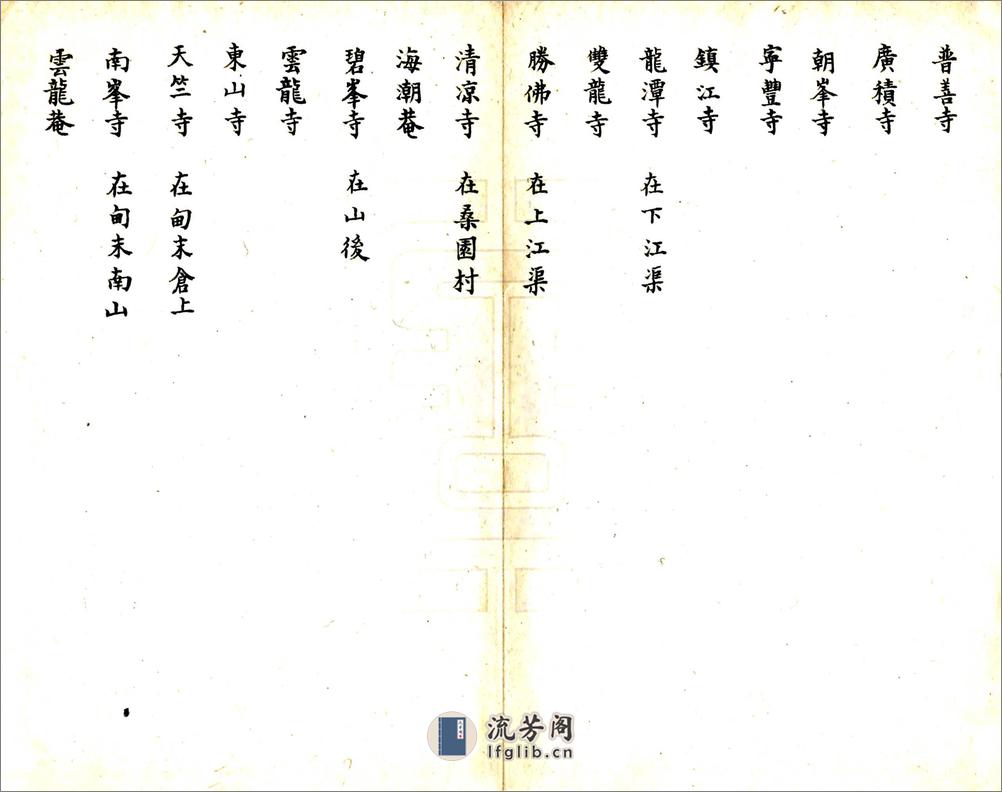 普善寺
廣積寺
朝峯寺
寧豐寺
鎮江寺
龍潭寺 在下江渠
雙龍寺
勝佛寺 在上江渠
清凉寺 在桑園村
海潮菴
碧峯寺 在山後
雲龍寺
東山寺
天竺寺 在甸末倉上
南峯寺 在甸末南山
雲龍菴
流芳阁
lfglib.cn